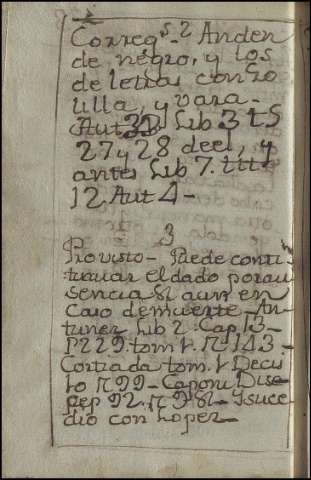 Correg.s 2 Anden
de negro, y los
de letras con Go
lilla, y vara -
Aut 33 Lib 3 tt 5
27 y 28 deel, y
antes Lib 7. tit
12 Aut 4 -
3
Provisto - Puede conti
nuar el dado por au
sencia Si aun en
Caso de muerte - An
tunez Lib 2 Cap 13 -
P 229. tom. 1. n. 143 -
Contiada tom. 1. Decis
10 n 99 - Caponi Dise
pep 92. n 9 Si - Y suce
dio con Lopez -